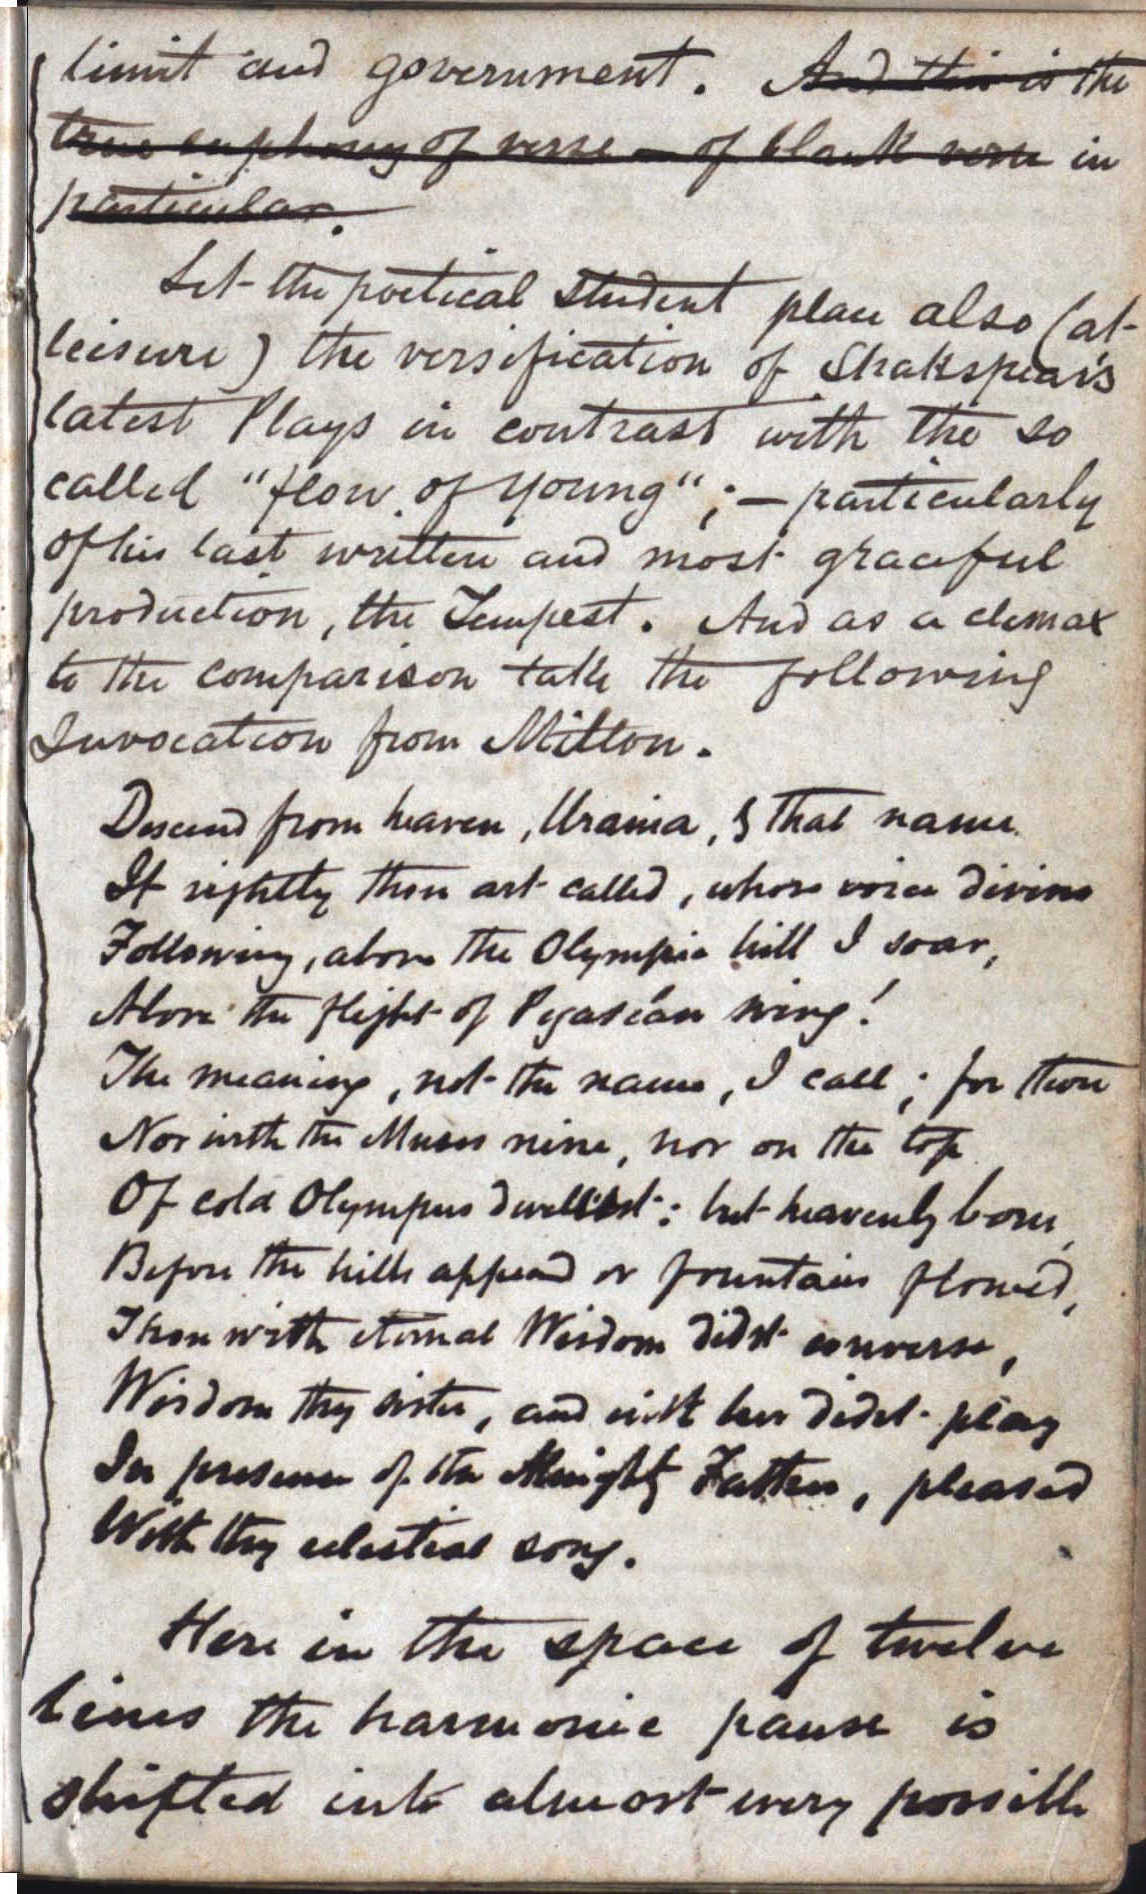 limit and government. And this is the
true euphony of verse — of blank verse in
particular.
Let the poetical student place also (at
leisure) the versification of Shakspear's
latest Plays in contrast with the so
called "flow of Young"; — particularly
of his last written and most graceful
production, the Tempest. And as a climax
to the comparison take the following
Invocation from Milton.
Descend from heaven, Urania, by that name
If rightly thou art called, whose voice divine
Following, above the Olympic hill I soar,
Above the flight of Pegaséan wing!
The meaning, not the name, I call; for thou
Nor with the Muses nine, nor on the top
Of cold Olympus dwellest: but heavenly born,
Before the hills appeard or fountain flowed,
Thou with eternal Wisdom didst converse,
Wisdom thy sister, and with her didst play
In presence of the Almighty Father, pleased
With thy celestial song.
Here in the space of twelve
lines the harmonic pause is
shifted into almost every possible